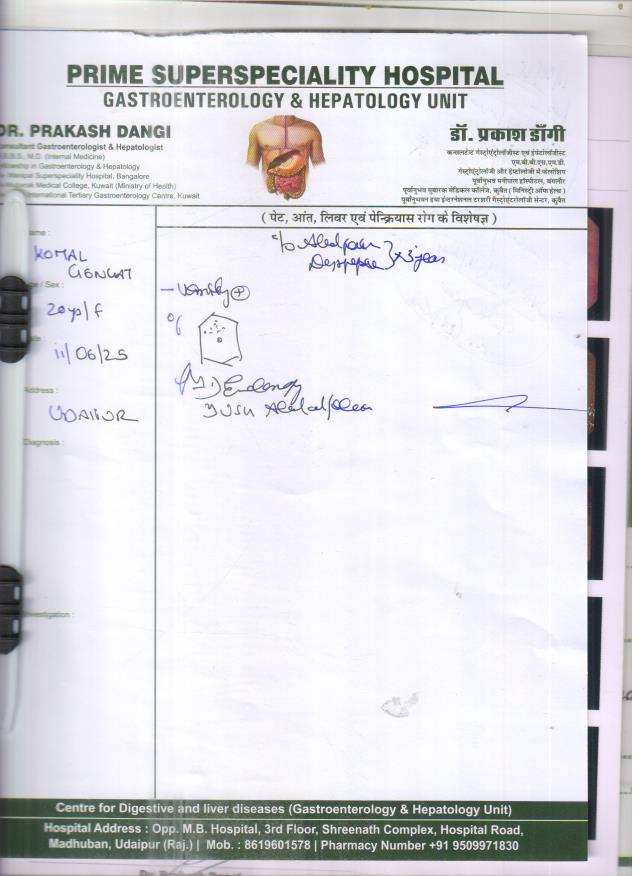 PRIME SUPERSPECIALITY HOSPITAL
GASTROENTEROLOGY & HEPATOLOGY UNIT
DR. PRAKASH DANGI
Consultant Gastroenterologist & Hepatologist
M.B.B.S., M.D. (Internal Medicine)
in Gastroenterology & Hepatology
Manipal Superspeciality Hospital, Bangalore
Mubarak Medical College, Kuwait (Ministry of Health)
International Tertiary Gastroenterology Centre, Kuwait
डॉ. प्रकाश डाँगी
कन्सलटेन्ट गेस्ट्रोएंट्रोलॉजीस्ट एवं हेपेटोलॉजीस्ट
एम.बी.बी.एस,एम.डी.
गेस्ट्रोएंट्रोलॉजी और हेप्टोलॉजी में फेलोशिप
पूर्वानुभव मनीपाल हॉस्पीटल, बंगलौर
पूर्वानुभव मुबारक मेडिकल कॉलेज, कुवैत ( मिनिस्ट्री ऑफ हेल्थ )
पूर्वानुभवन इया इन्टरनेशनल टरशरी गेस्ट्रोएंटरोलॉजी सेन्टर, कुवैत
( पेट, आंत, लिवर एवं पेन्क्रियास रोग के विशेषज्ञ )
Name :
KOMAL
c/o
x 3 years
Age / Sex :
20 yrs/F
Date :
11/06/25
Address :
UDAIPUR
Diagnosis :
Investigation :
Centre for Digestive and liver diseases (Gastroenterology & Hepatology Unit)
Hospital Address : Opp. M.B. Hospital, 3rd Floor, Shreenath Complex, Hospital Road,
Madhuban, Udaipur (Raj.) | Mob. : 8619601578 | Pharmacy Number +91 9509971830